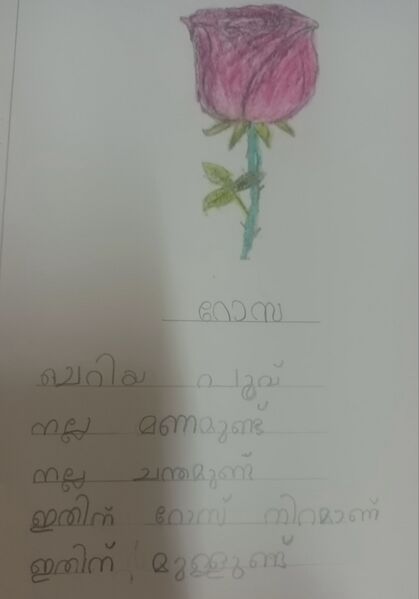 റോസ
ചെറിയ പൂവ്
നല്ല മണമുണ്ട്
നല്ല ചന്തമുണ്ട്
ഇതിന് റോസ് നിറമാണ്
ഇതിന് മുള്ളുണ്ട്